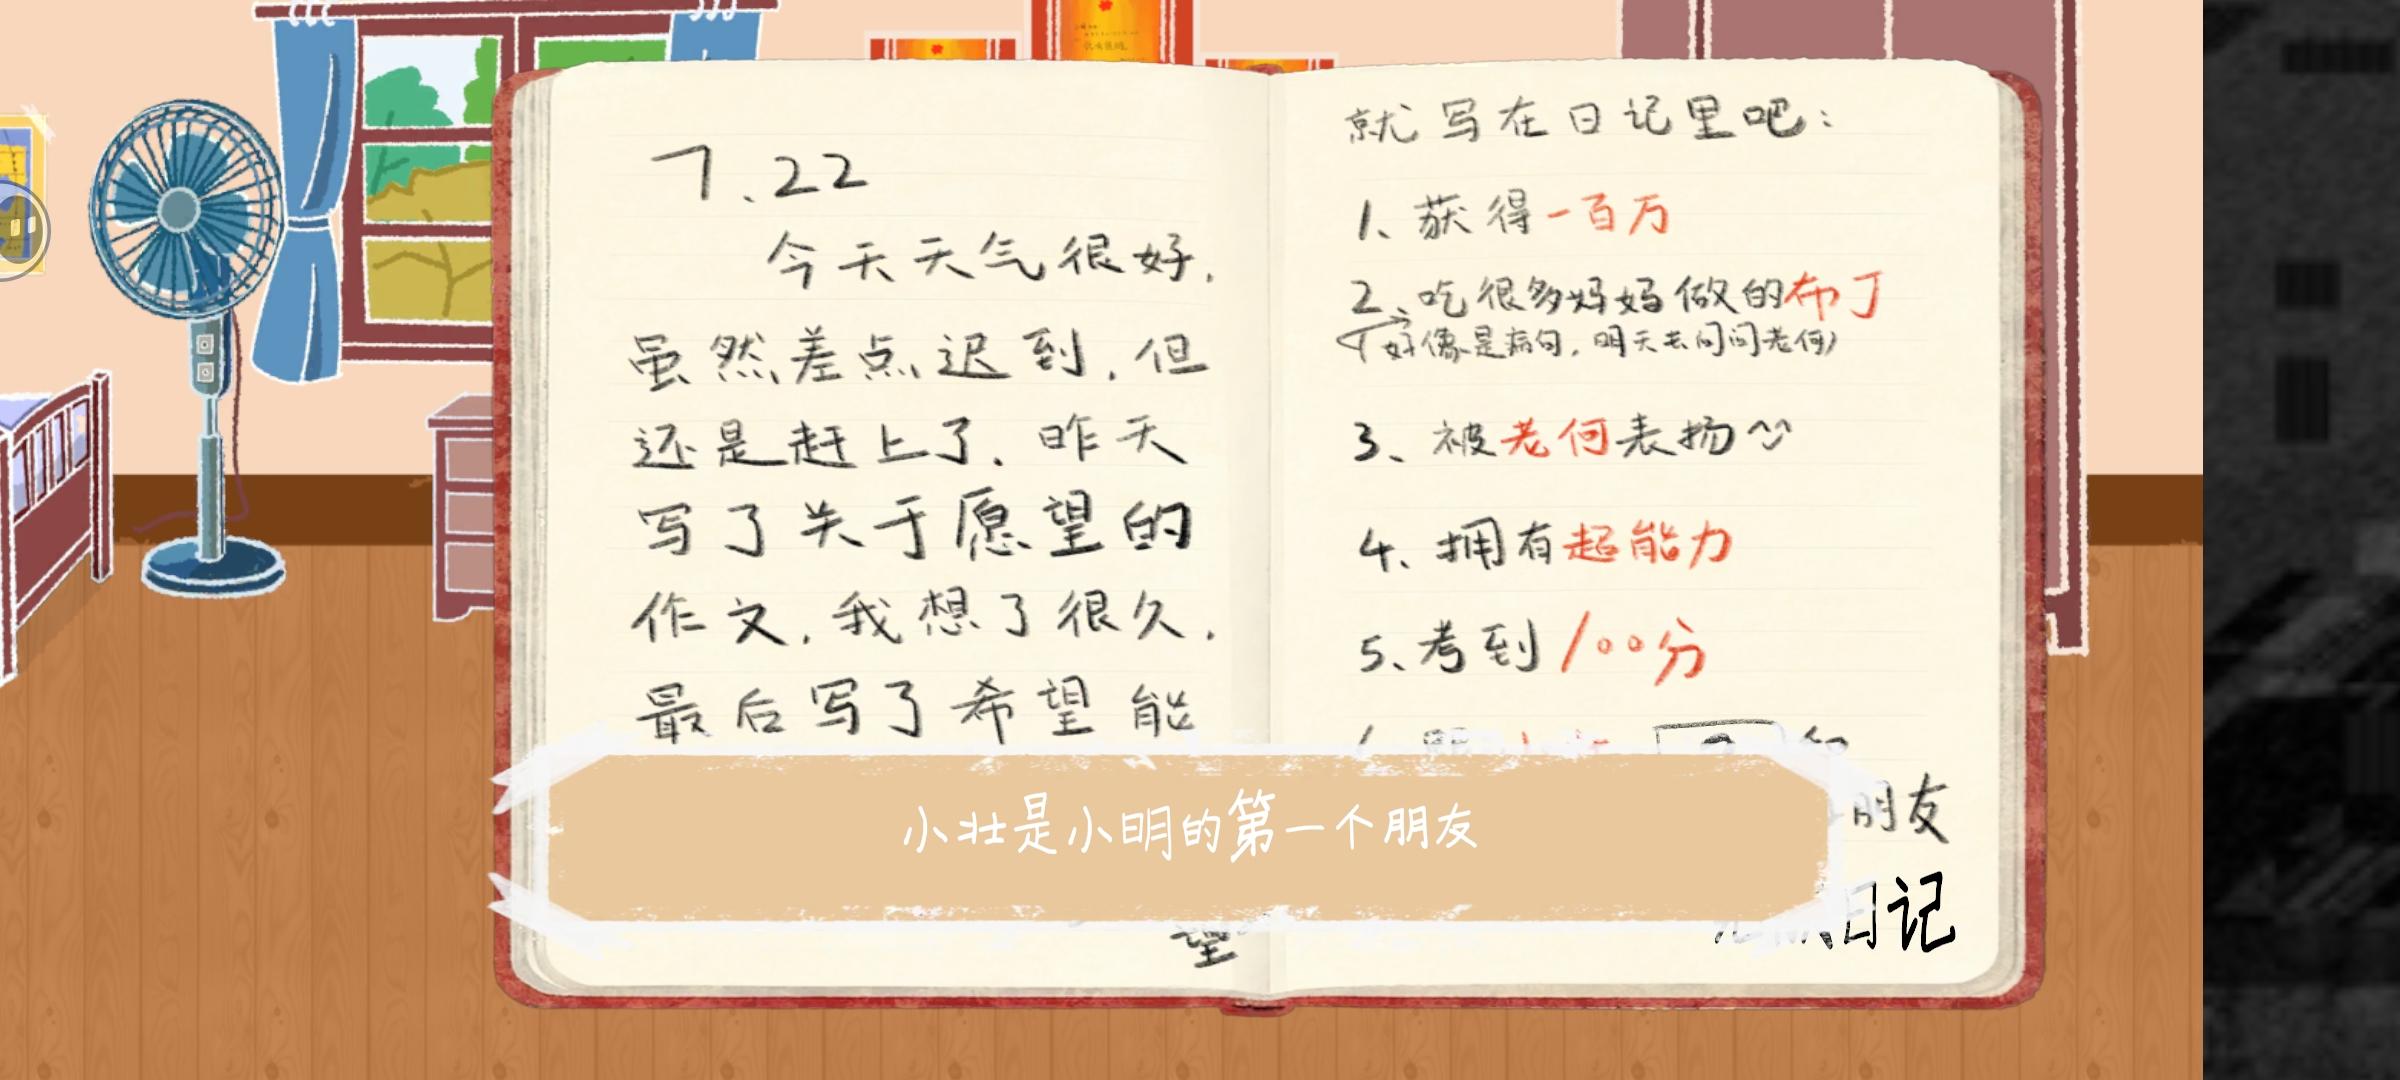 7.22
今天天气很好.
虽然差点迟到.但
还是赶上了.昨天
写了关于愿望的
作文.我想了很久.
最后写了希望能
望
就写在日记里吧：
1、获得一百万
2、吃很多妈妈做的布丁
(好像是病句.明天去问问老何)
3、被老何表扬
4、拥有超能力
5、考到100分
朋友
日记
小壮是小明的第一个朋友